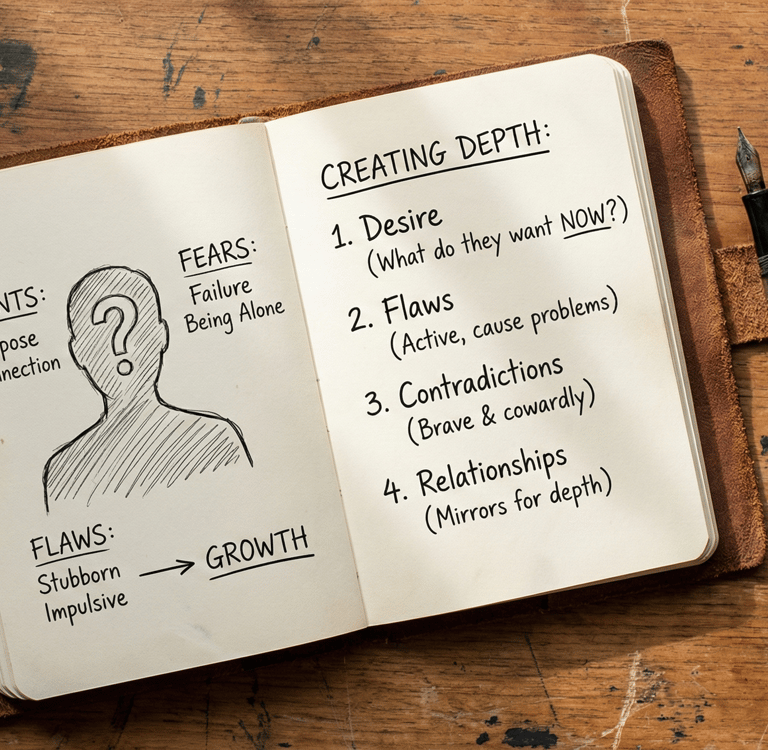 NTS:
pose
nection
FEARS:
Failure
Being Alone
?
FLAWS:
Stubborn
Impulsive
GROWTH
CREATING DEPTH:
1. Desire
(What do they want NOW?)
2. Flaws
(Active, cause problems)
3. Contradictions
(Brave & cowardly)
4. Relationships
(Mirrors for depth)